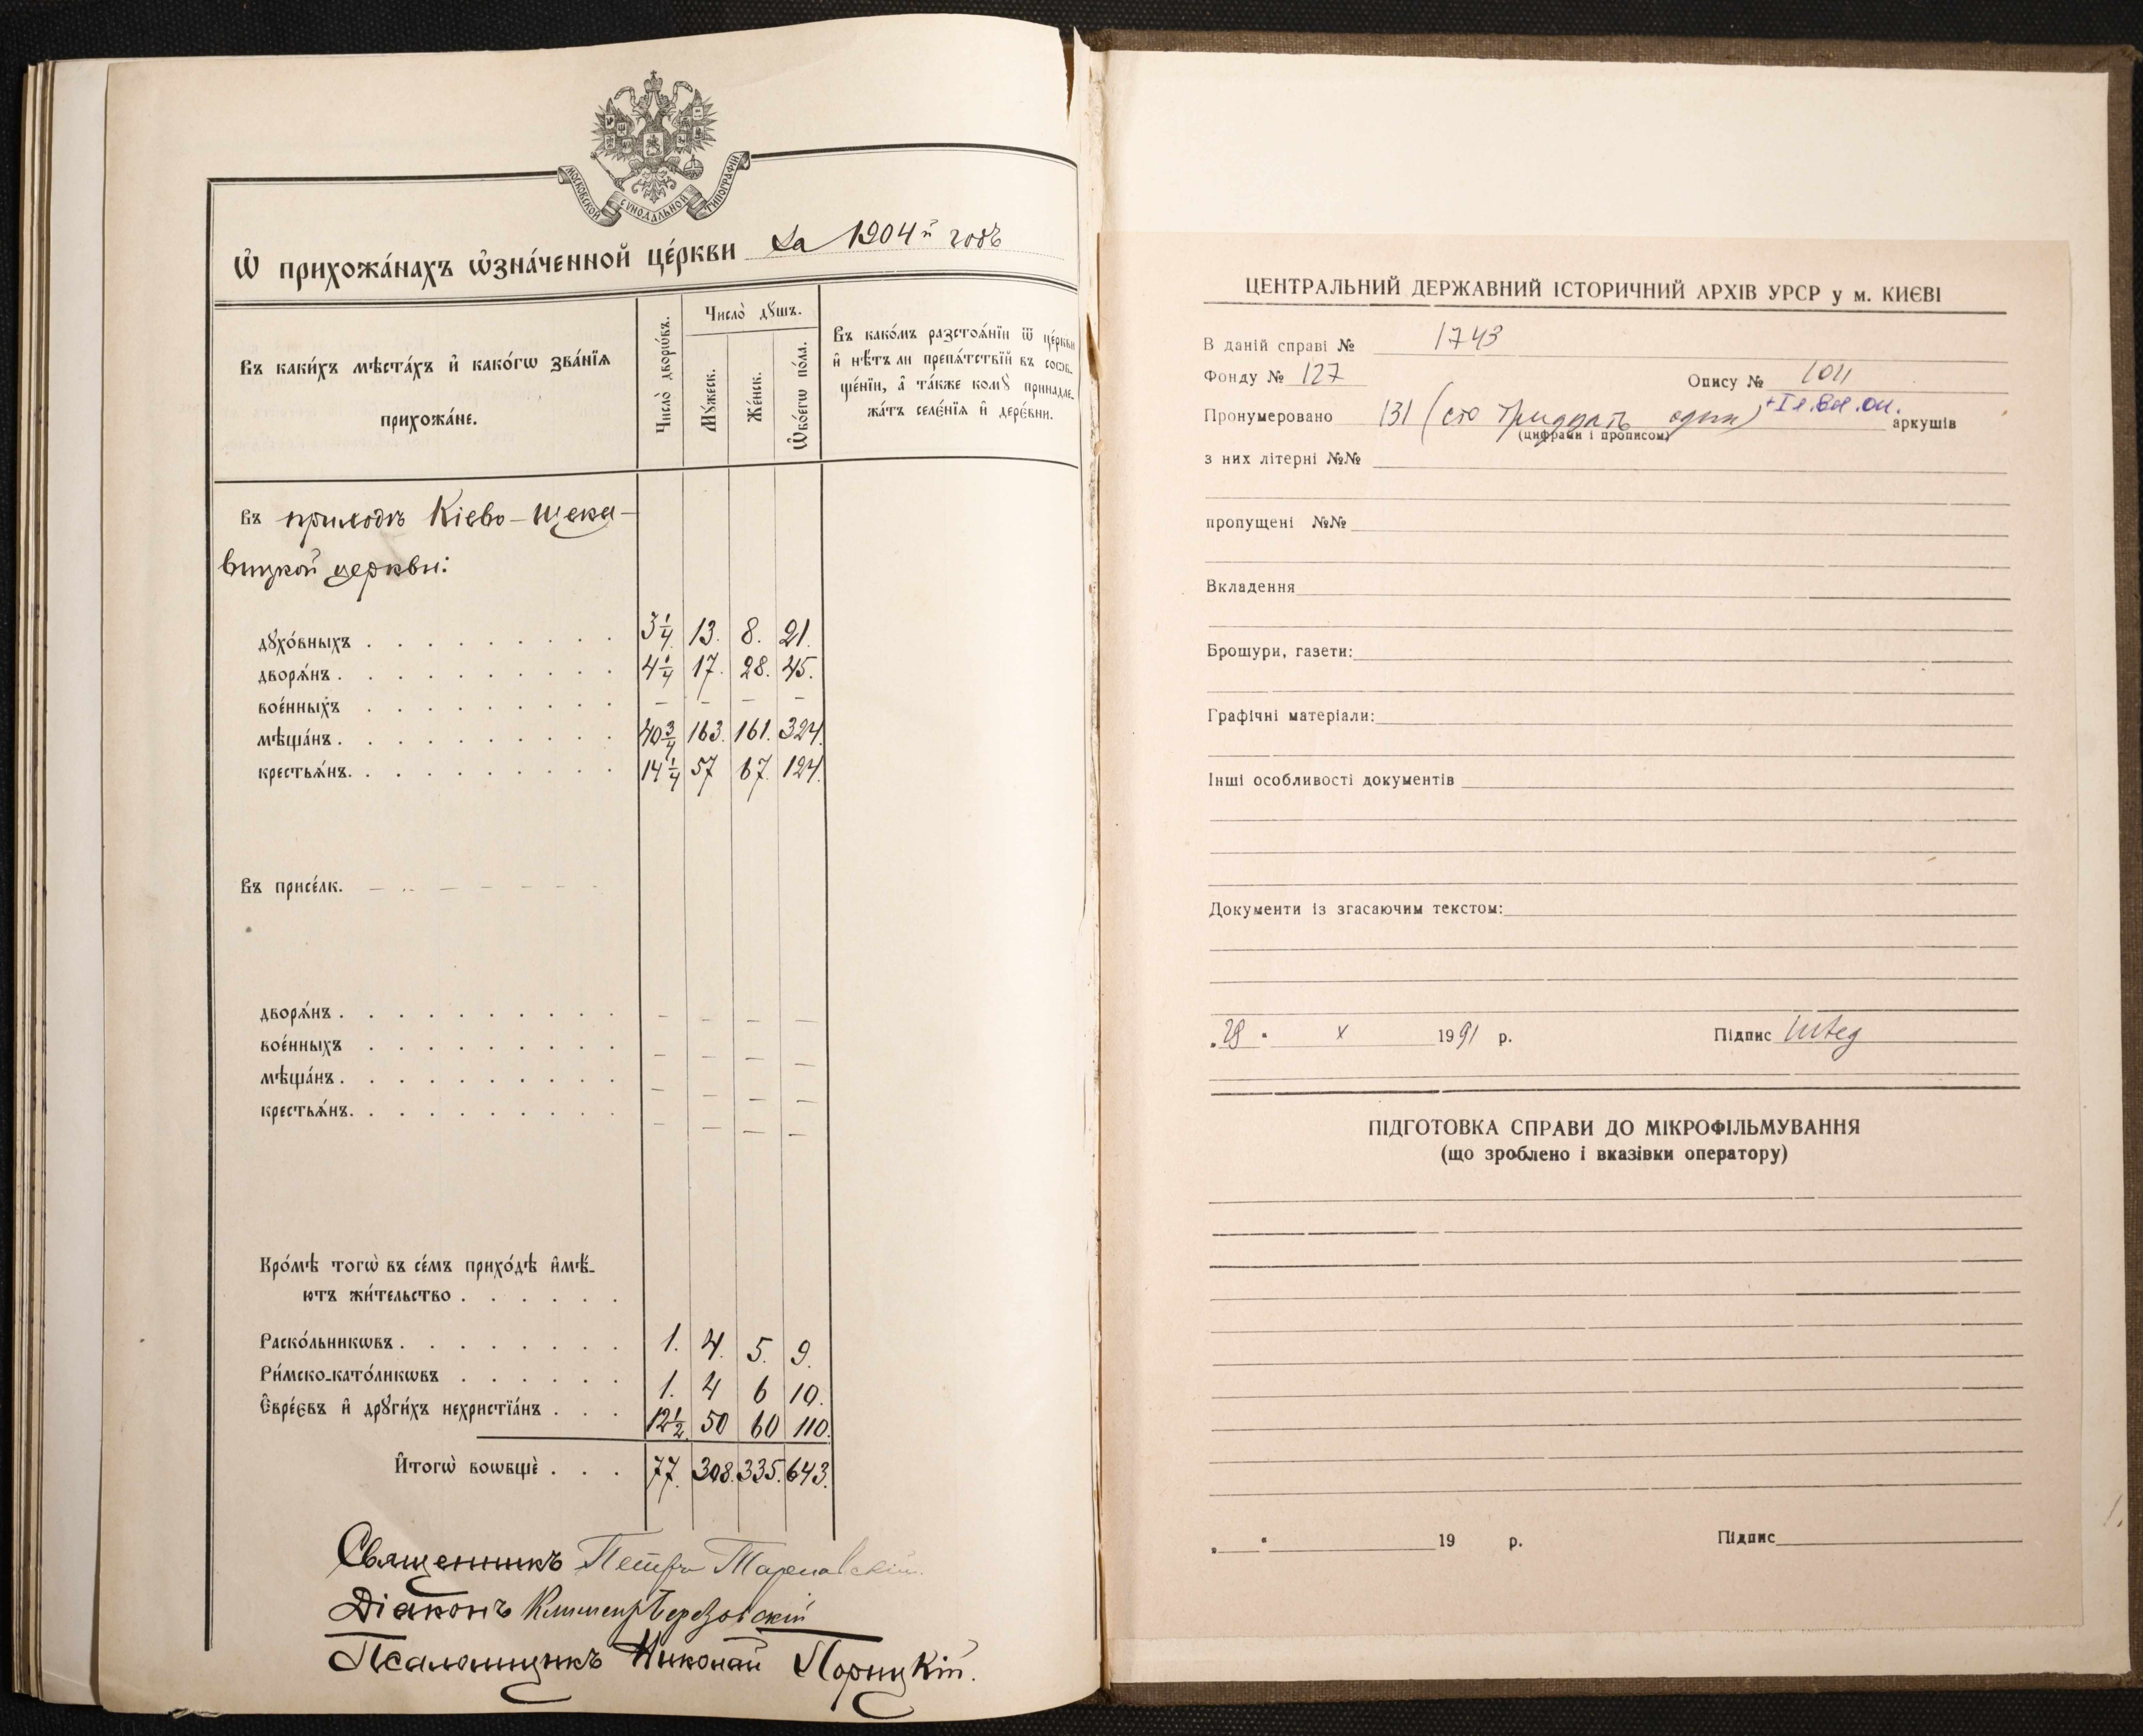 МОСКОВСКОЙ СУНОДАЛЬНОЙ ТИПОГРАФІИ
Ѿ прихожа́нахъ ѡ҆зна́ченной це́ркви За 1904й годъ
Въ каки́хъ мѣста́хъ и҆ како́гѡ зва́нїѧ
прихожа́не.
Число̀ дворѡ́въ.
Число̀ дꙋ́шъ.
Мꙋ́жеск.
Же́нск.
Ѻ҆бо́егѡ по́ла.
Въ како́мъ разстоѧ́нїи ѿ це́ркви
и҆ нѣ́тъ ли препѧ́тствїй въ сооб-
ще́нїи, а҆ та́кже комꙋ̀ принадле-
жа́тъ селе́нїѧ и҆ дере́вни.
Въ приходѣ Кіево-Щека-
вицкой церкви:
дꙋхо́вныхъ . . . 3 1/4 13. 8. 21.
дворѧ́нъ . . . 4 1/4 17. 28. 45.
вое́нныхъ . . . – – – –
мѣща́нъ . . . 40 3/4 163. 161. 324.
крестьѧ́нъ . . . 14 1/4 57 67. 124.
Въ присе́лк. – – – – –
дворѧ́нъ . . . – – – –
вое́нныхъ . . . – – – –
мѣща́нъ . . . – – – –
крестьѧ́нъ . . . – – – –
Кро́мѣ тогѡ̀ въ се́мъ прихо́дѣ и҆мѣ́-
ютъ жи́тельство . . .
Раско́льникѡвъ . . . 1. 4. 5. 9.
Ри́мско-като́ликѡвъ . . . 1. 4 6 10.
Є҆вре́євъ и҆ дрꙋги́хъ нехристїа́нъ . . . 12 1/2 50 60 110.
И҆тогѡ̀ вообщѐ . . . 77. 308. 335. 643.
Священникъ Петръ Тарновскій.
Діаконъ Климент Березовскій
Псаломщикъ Николай Порицкій.
ЦЕНТРАЛЬНИЙ ДЕРЖАВНИЙ ІСТОРИЧНИЙ АРХІВ УРСР у м. КИЄВІ
В даній справі № 1743
Фонду № 127 Опису № 1011
Пронумеровано 131 (сто тридцать один) + I л. вн. оп. аркушів
(цифрами і прописом)
з них літерні №№
пропущені №№
Вкладення
Брошури, газети:
Графічні матеріали:
Інші особливості документів
Документи із згасаючим текстом:
„28 “ X 1991 р. Підпис
ПІДГОТОВКА СПРАВИ ДО МІКРОФІЛЬМУВАННЯ
(що зроблено і вказівки оператору)
„ “ 19 р. Підпис